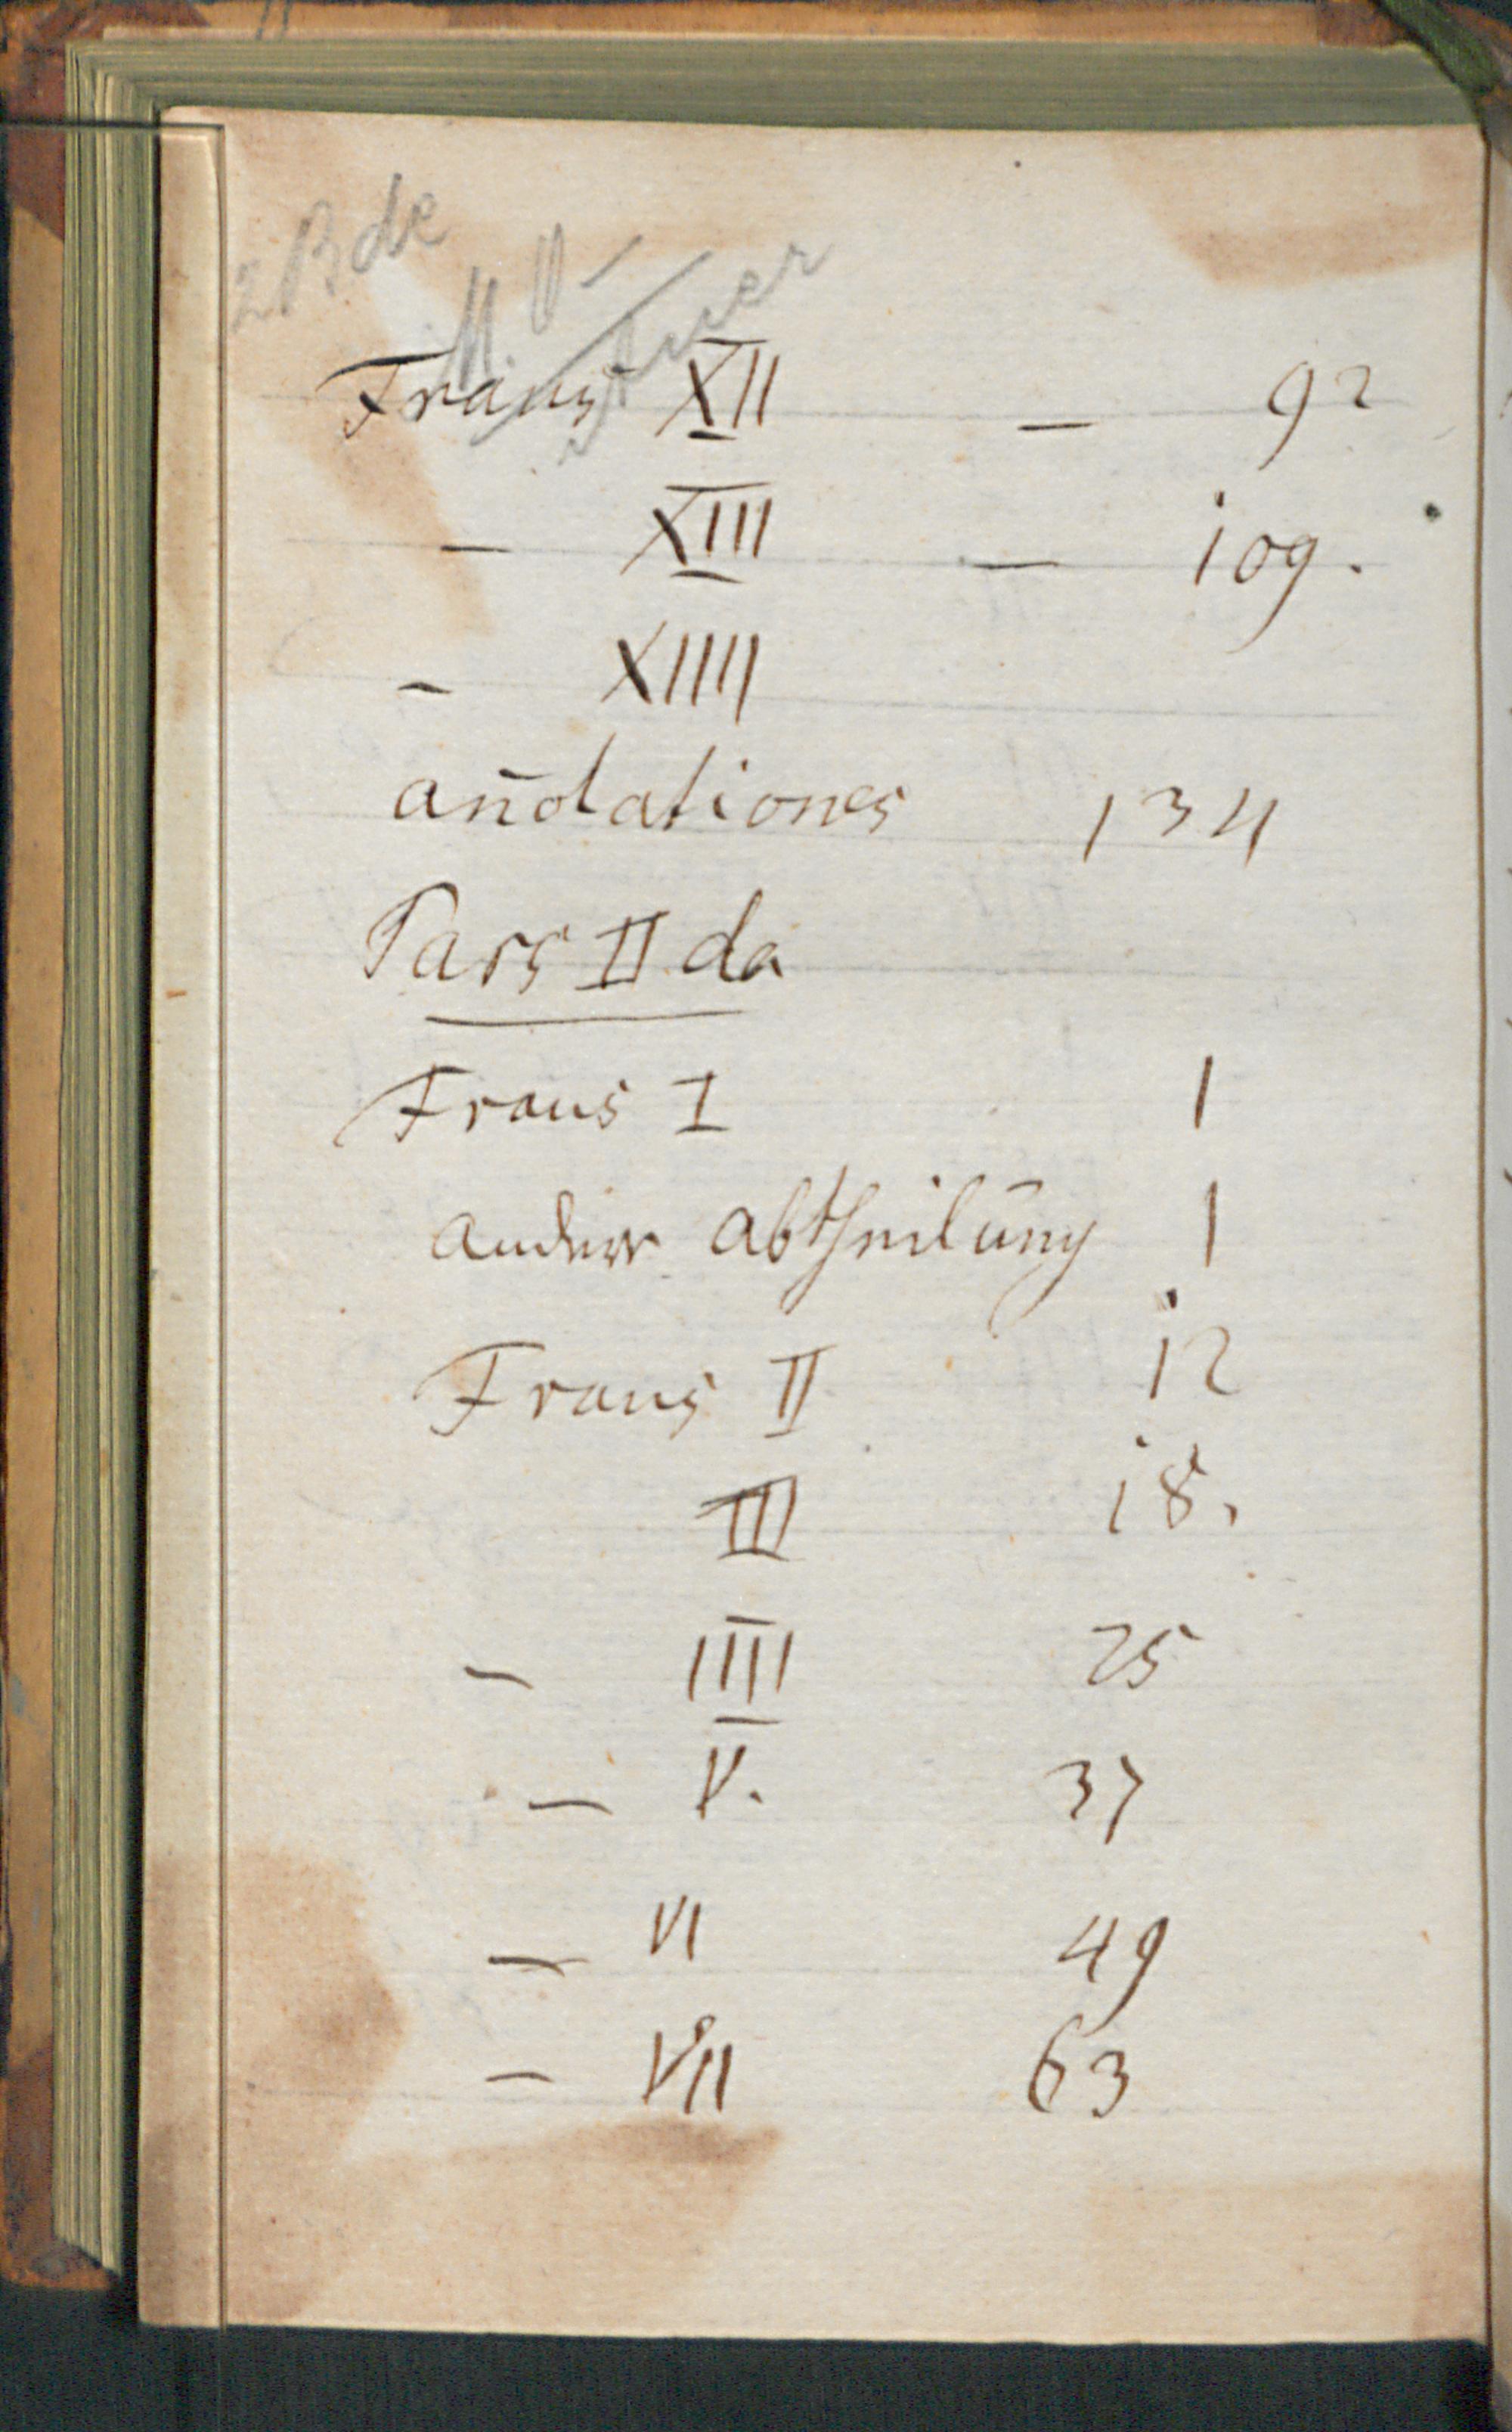 2 Bde
Fraus XII — 92
— XIII — 109.
— XIIII
añotationes 134
Pars II da
Fraus I 1
andere abtheilung 1
Fraus II 12
III 18.
— IIII 25
— V. 37
— VI 49
— VII 63